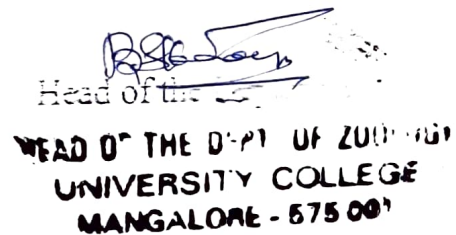 Head of the
HEAD OF THE DEPT OF ZOOLOGY
UNIVERSITY COLLEGE
MANGALORE - 575 001